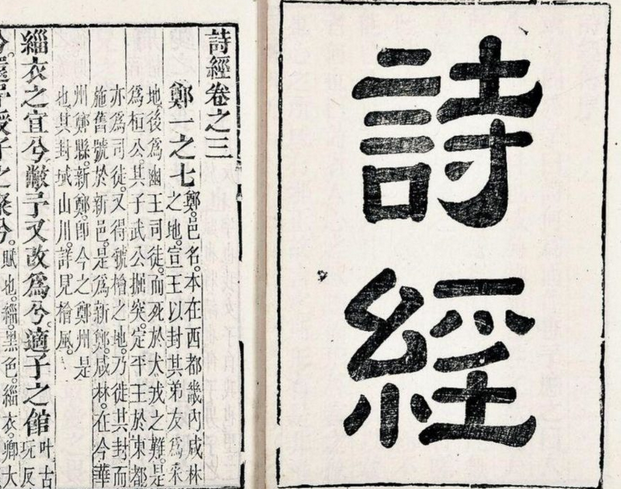 詩經
詩經卷之三
鄭一之七
鄭。邑名。本在西都畿內咸林
之地。宣王以封其弟友爲采
地後爲幽王司徒。而死於犬戎之難是
爲桓公。其子武公掘突。定平王於東都
亦爲司徒。又得虢檜之地。乃徙其封而
施舊號於新邑。是爲新鄭。咸林。在今華
州鄭縣。新鄭。即今之鄭州是
也。其封域山川。詳見檜風。
緇衣之宜兮敝予又改爲兮。適子之館叶古玩反
兮。還予授子之粲兮。賦也。緇。黑色。緇衣。卿大